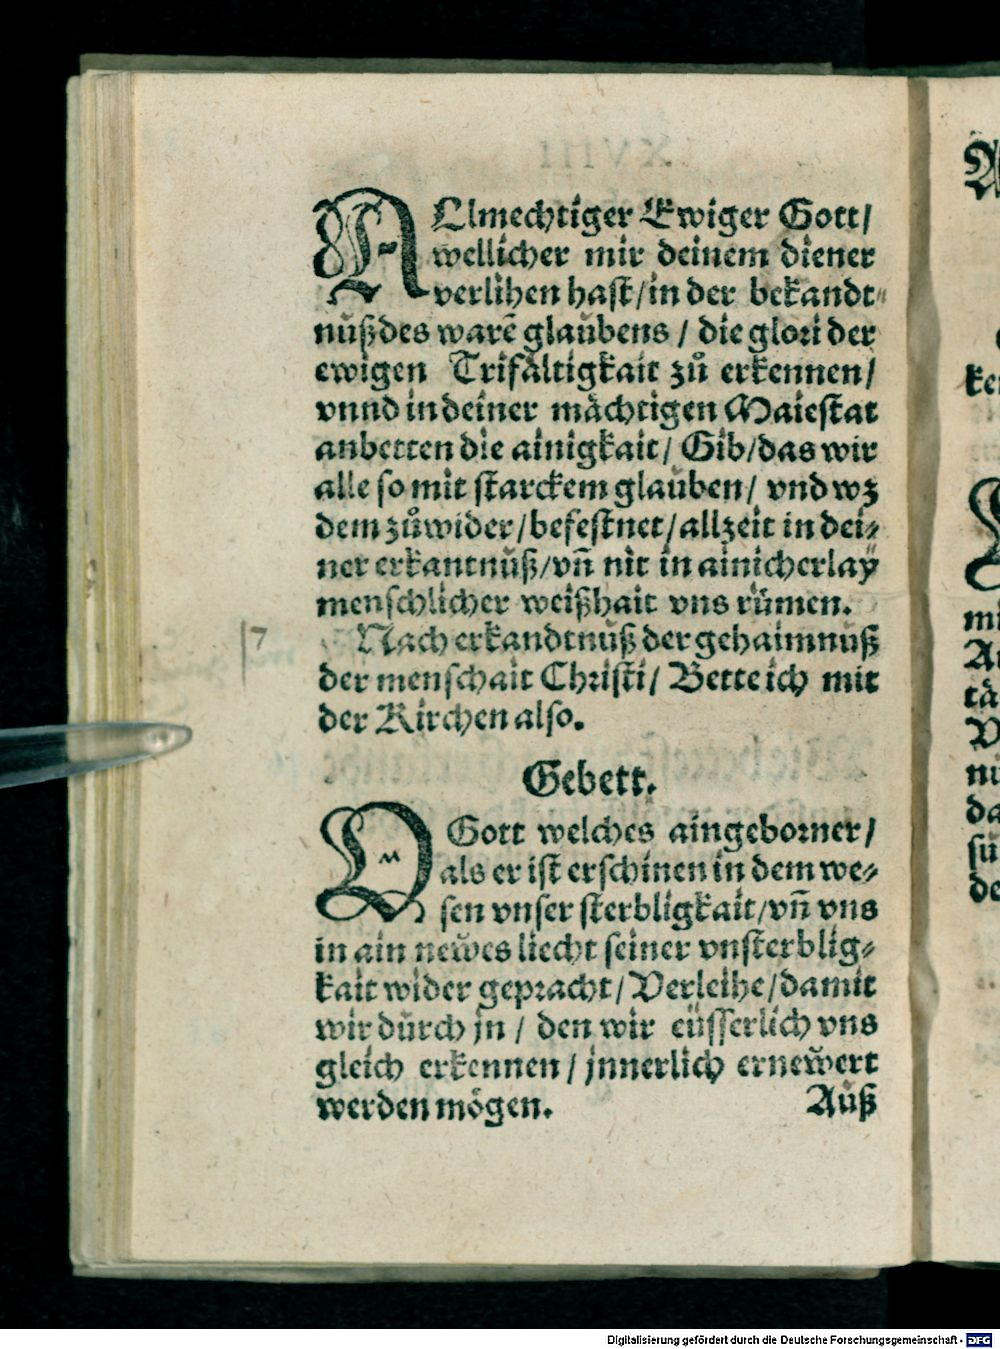 ALlmechtiger Ewiger Gott/
wellicher mir deinem diener
verlihen hast/in der bekandt⸗
nůß des warē glaubens / die glori der
ewigen Trifåltigkait zů erkennen/
vnnd in deiner måchtigen Maiestat
anbetten die ainigkait/ Gib/das wir
alle so mit starckem glauben/ vnd wz
dem zůwider/befestnet/allzeit in dei⸗
ner erkantnůß/vn̄ nit in ainicherlay
menschlicher weißhait vns růmen.
Nach erkandtnuß der gehaimnuß
der menschait Christi/ Bette ich mit
der Kirchen also.
7
Gebett.
O Gott welches aingeborner/
als er ist erschinen in dem we⸗
sen vnser sterbligkait/vn̄ vns
in ain newes liecht seiner vnsterblig⸗
kait wider gepracht/Verleihe/damit
wir durch jn / den wir eüsserlich vns
gleich erkennen / jnnerlich ernewert
werden mögen.
Auß
ke
mi
tå
da
sü
de
Digitalisierung gefördert durch die Deutsche Forschungsgemeinschaft - DFG